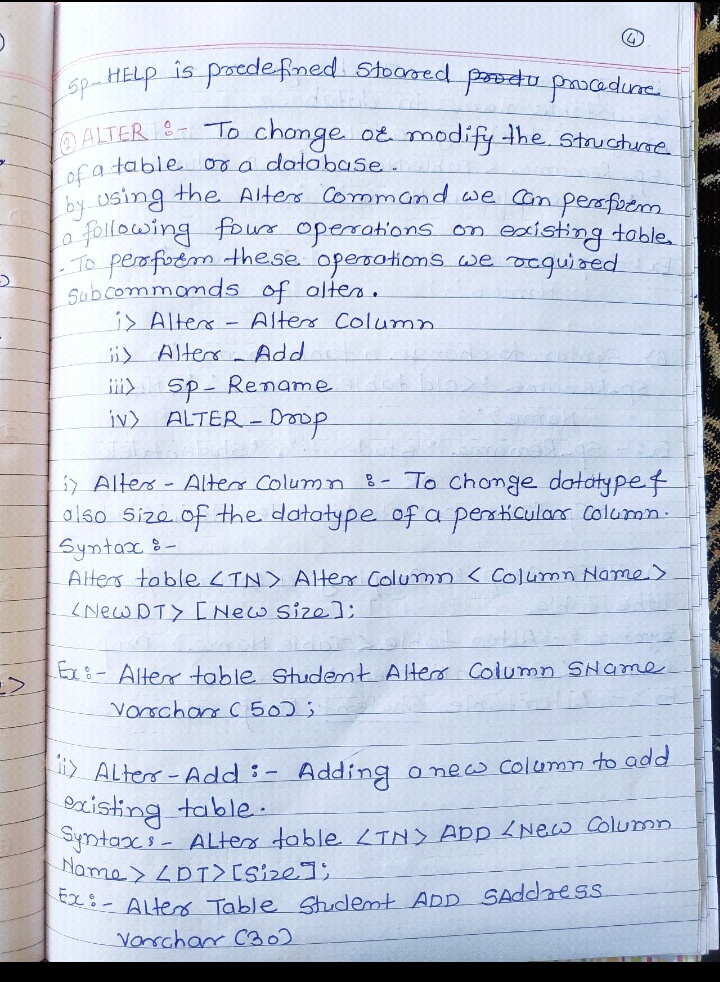 4
Sp-HELP is predefined stoared procedure
② ALTER :- To change or modify the structure
of a table or a database.
by using the Alter Command we can perform
a following four operations on existing table.
- To perform these operations we required
Subcommands of alter.
i> Alter - Alter Column
ii> Alter - Add
iii> Sp - Rename
iv> ALTER - Drop
i> Alter - Alter Column :- To change datatype &
also size of the datatype of a perticular column.
Syntax :-
Alter table <TN> Alter Column < Column Name>
<New DT> [New Size];
Ex:- Alter table Student Alter Column SName
Varchar (50);
ii> Alter - Add :- Adding a new column to add
existing table.
Syntax :- Alter table <TN> ADD <New Column
Name> <DT> [Size];
Ex:- Alter Table Student ADD SAddress
Varchar (30)